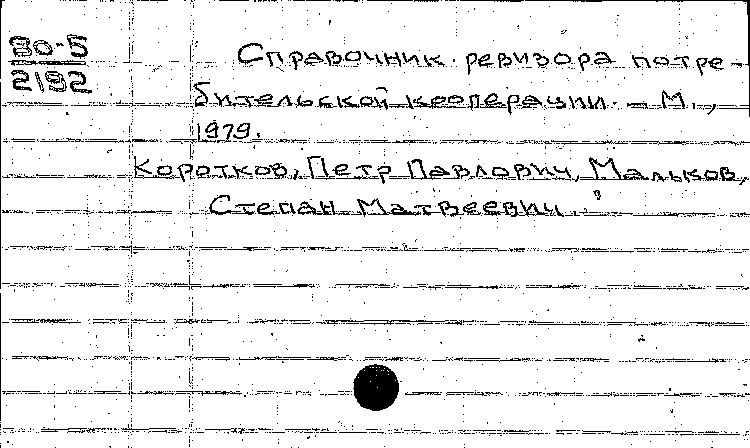 80-5
2192
Справочник ревизора потре-
бительской кооперации. – М.,
1979.
Коротков, Петр Павлович, Мальков,
Степан Матвеевич.